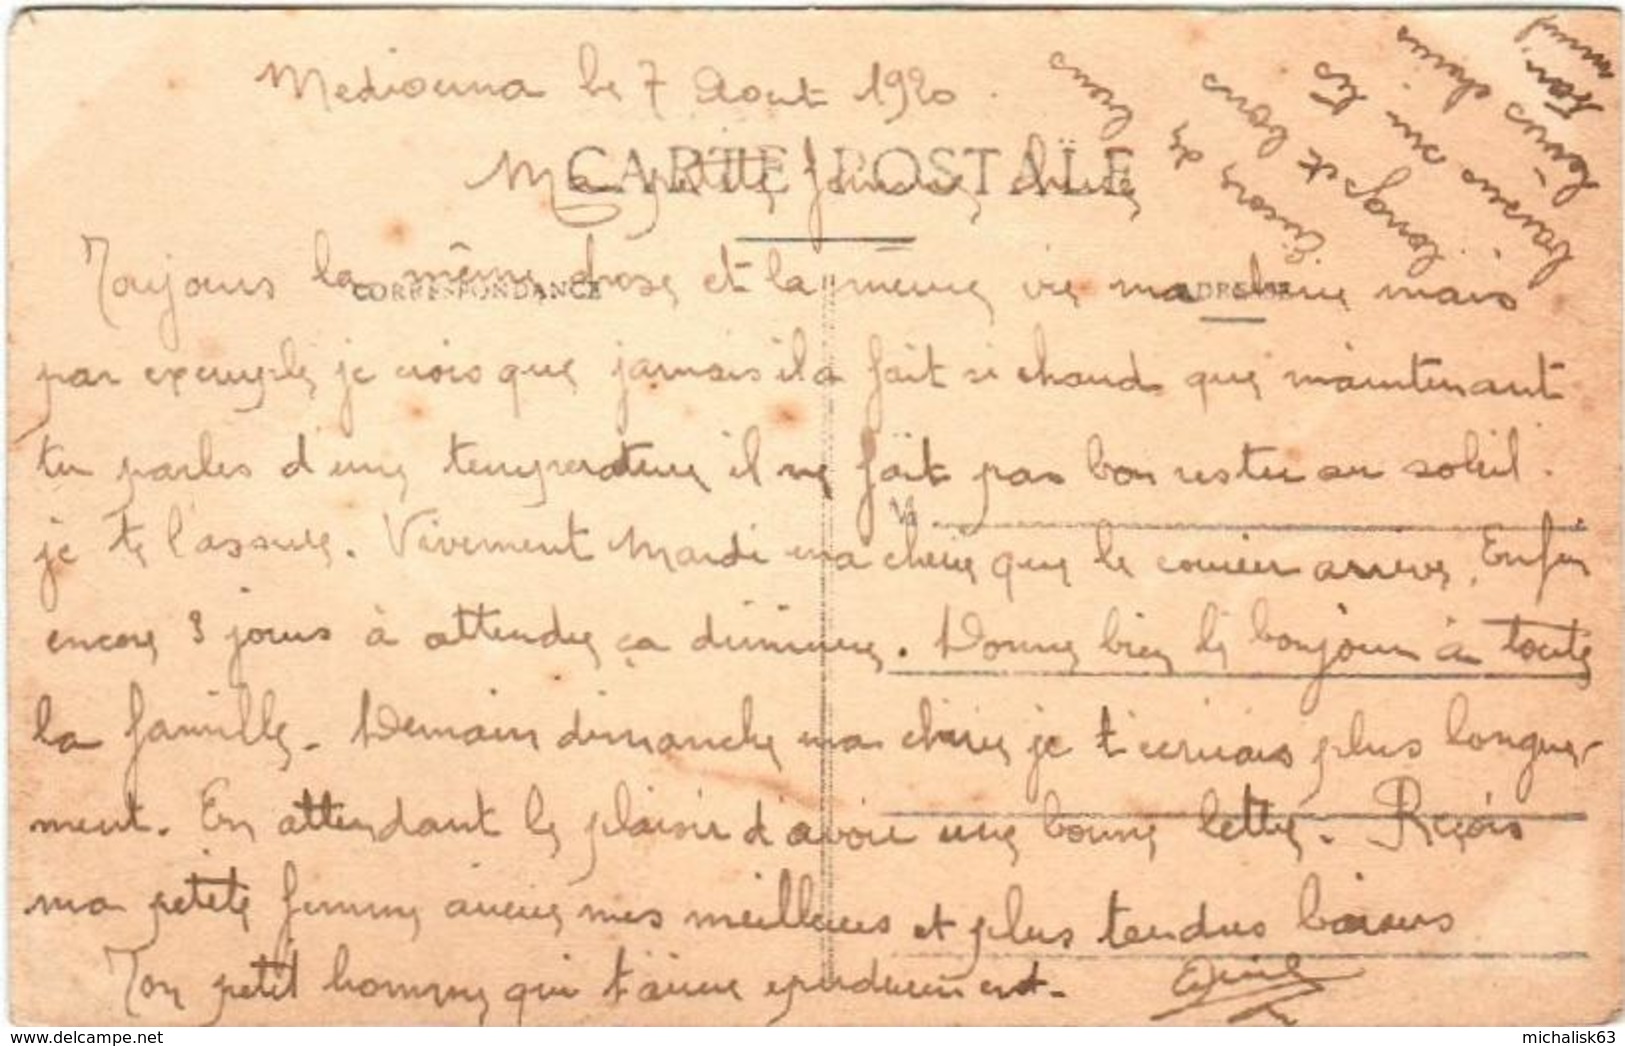 Mediouna le 7 Aout 1920.
CARTE POSTALE
Ma petite femme cherie
CORRESPONDANCE
ADRESSE
Toujours la même chose et la meme vie ma cherie mais
par exemple je crois que jamais il a fait si chaud que maintenant
tu parles d'une temperature il ne fait pas bon rester au soleil.
je te l'assure. Vivement Mardi ma cherie que le courier arrive. Enfin
encore 3 jours à attendre ça diminue. Donne bien le bonjour à toute
la famille. Demain dimanche ma cherie je t'écrirais plus longue-
ment. En attendant le plaisir d'avoir une bonne lettre. Reçois
ma petite femme aimée mes meilleurs et plus tendres baisers
Ton petit homme qui t'aime eperduement.
M
longs et bons
baisers sur tes
michalisk63
https://www.delcampe.net